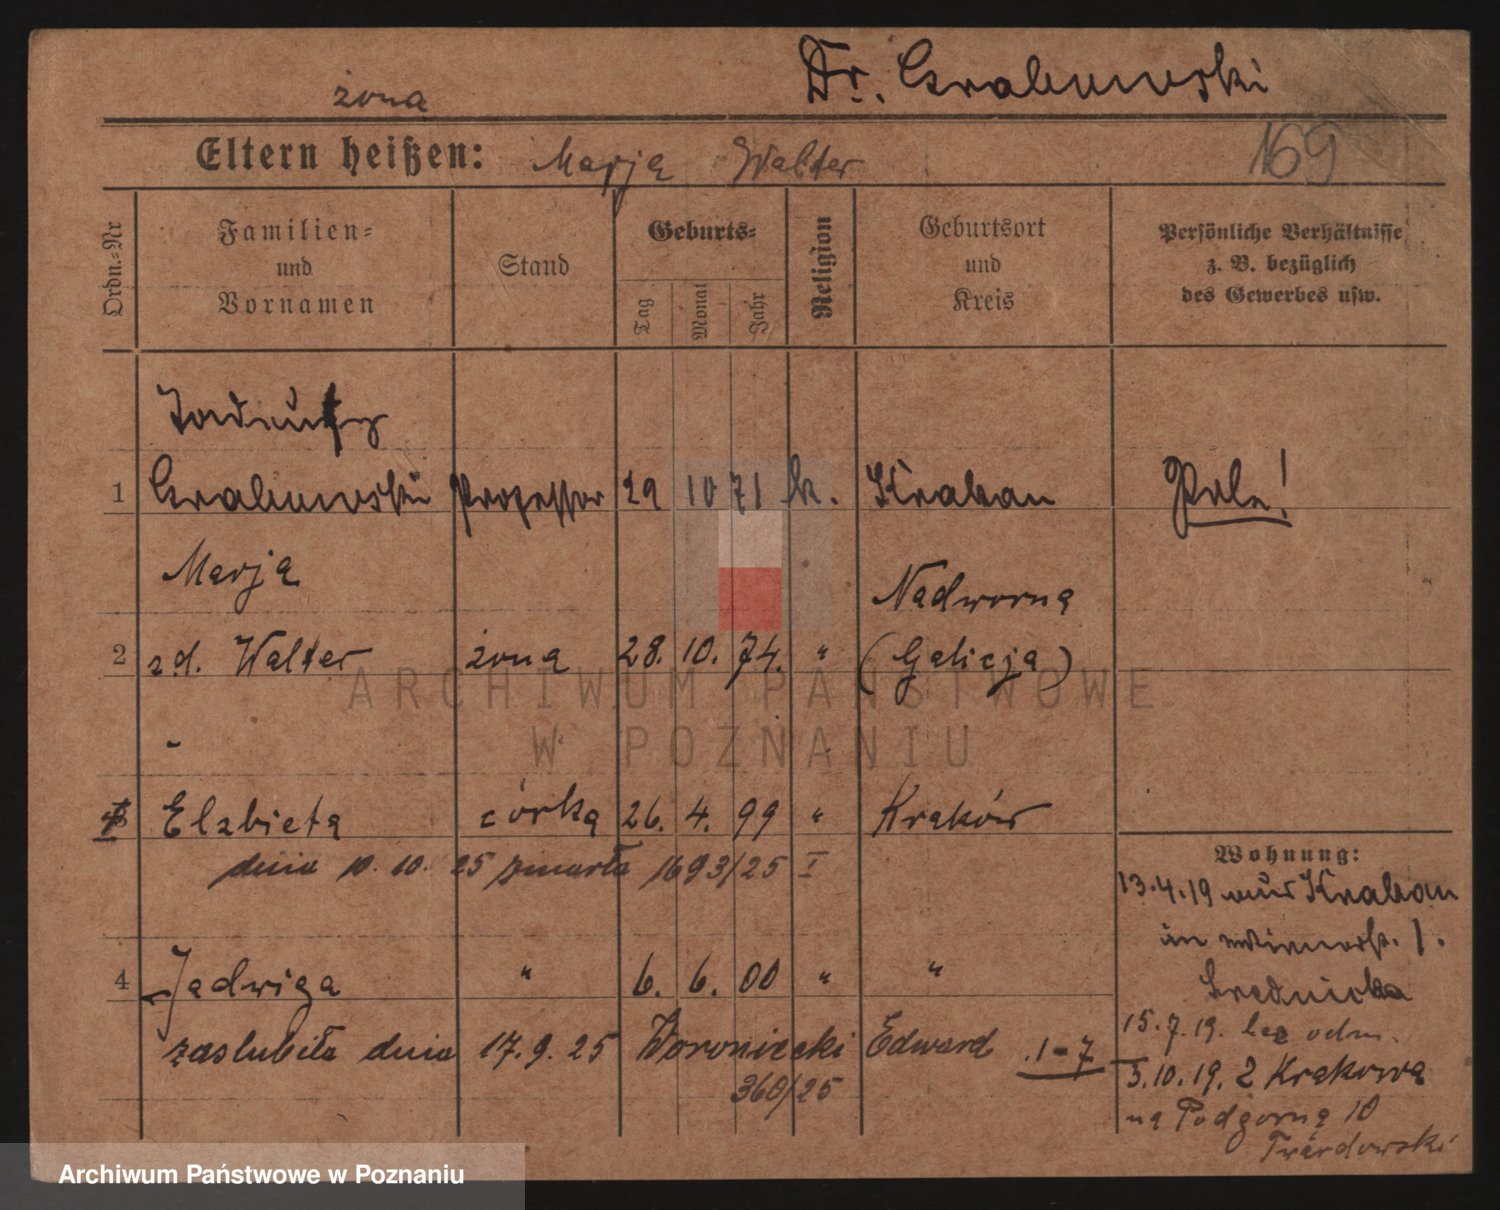 Dr. Grabowski
żona
Eltern heißen: Marja Walter
169
Ordn.-Nr
Familien-
und
Vornamen
Stand
Geburts-
Tag
Monat
Jahr
Religion
Geburtsort
und
Kreis
Persönliche Verhältnisse
z. B. bezüglich
des Gewerbes usw.
Tadeusz
1 Grabowski Professor 29 10 71 k. Krakau Pole!
Marja
Nadworna
2 z d. Walter żona 28. 10. 74. " (Galicja)
ARCHIWUM PAŃSTWOWE
W POZNANIU
-
3 Elzbieta córka 26. 4. 99 " Kraków
dnia 10. 10. 25 zmarła 1693/25 I
Wohnung:
13.4.19 aus Krakau
in 1.
4 Jadwiga " 6. 6. 00 " "
Srednicka
zaslubiła dnia 17. 9. 25 Woroniecki Edward 1-7
360/25
15.7.19. bez odm.
3.10.19. z Krakowa
na Podgorną 10
Twardowski
Archiwum Państwowe w Poznaniu